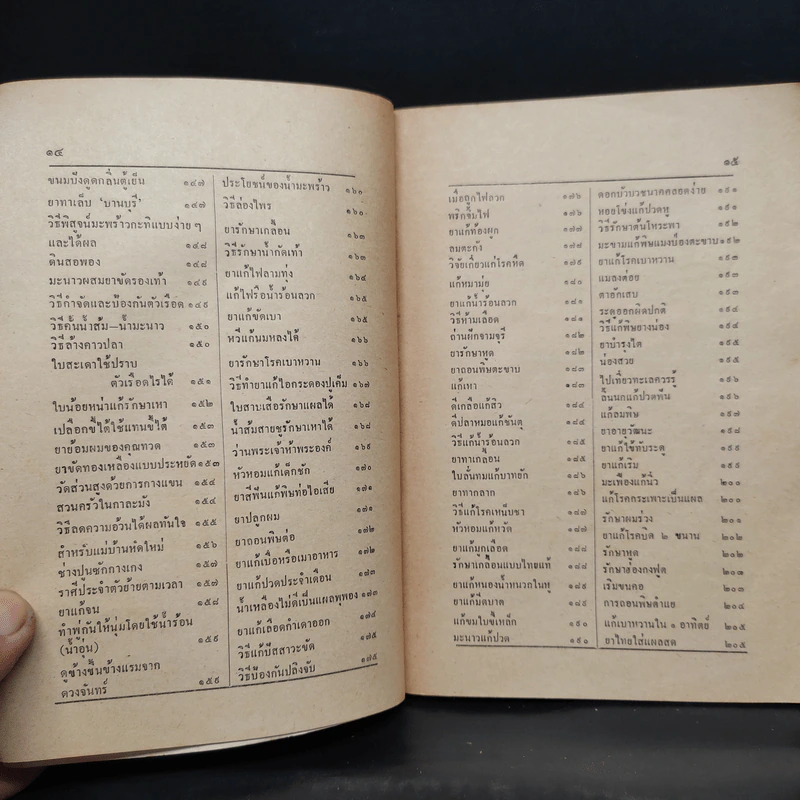 ๑๔
ขนมปังดูดกลิ่นตู้เย็น ๑๔๗
ยาทาเล็บ 'บานบุรี' ๑๔๗
วิธีพิสูจน์มะพร้าวกะทิแบบง่าย ๆ
และได้ผล ๑๔๘
ดินสอพอง ๑๔๘
มะนาวผสมยาขัดรองเท้า ๑๔๙
วิธีกำจัดและป้องกันตัวเรือด ๑๔๙
วิธีคั้นน้ำส้ม—น้ำมะนาว ๑๕๐
วิธีล้างคาวปลา ๑๕๐
ใบสะเดาใช้ปราบ
ตัวเรือดไรได้ ๑๕๑
ใบน้อยหน่าแก้รักษาเหา ๑๕๒
เปลือกขี้ใต้ใช้แทนขี้ใต้ ๑๕๓
ยาย้อมผมของคุณทวด ๑๕๓
ยาขัดทองเหลืองแบบประหยัด ๑๕๓
วัดส่วนสูงด้วยการกางแขน ๑๕๔
สวนครัวในกาละมัง ๑๕๔
วิธีลดความอ้วนได้ผลทันใจ ๑๕๕
สำหรับแม่บ้านหัดใหม่ ๑๕๖
ช่างปูนซักกางเกง ๑๕๗
ราศีประจำตัวย้ายตามเวลา ๑๕๗
ยาแก้จน ๑๕๘
ทำพู่กันให้นุ่มโดยใช้น้ำร้อน
(น้ำอุ่น) ๑๕๙
ดูข้างขึ้นข้างแรมจาก
ดวงจันทร์ ๑๕๙
ประโยชน์ของน้ำมะพร้าว ๑๖๐
วิธีล่องไพร ๑๖๐
ยารักษาเกลื้อน ๑๖๑
วิธีรักษาน้ำกัดเท้า ๑๖๓
ยาแก้ไฟลามทุ่ง ๑๖๔
แก้ไฟรือน้ำร้อนลวก ๑๖๕
ยาแก้ขัดเบา ๑๖๕
หวีแก้นมหลงได้ ๑๖๖
ยารักษาโรคเบาหวาน ๑๖๖
วิธีทำยาแก้ไอกระดองปูเค็ม ๑๖๗
ใบสาบเสือรักษาแผลได้ ๑๖๘
น้ำส้มสายชูรักษาเหาได้ ๑๖๘
ว่านพระเจ้าห้าพระองค์ ๑๖๙
หัวหอมแก้เด็กชัก ๑๗๐
ยาสีฟันแก้พิษท่อไอเสีย ๑๗๑
ยาปลูกผม ๑๗๑
ยาถอนพิษต่อ ๑๗๒
ยาแก้เบื่อหรือเมาอาหาร ๑๗๒
ยาแก้ปวดประจำเดือน ๑๗๓
น้ำเหลืองไม่ดีเป็นแผลพุพอง ๑๗๓
ยาแก้เลือดกำเดาออก ๑๗๔
วิธีแก้ปัสสาวะขัด ๑๗๕
วิธีป้องกันปลิงจับ ๑๗๕
๑๕
เมื่อถูกไฟลวก ๑๗๖
พริกจิ้มไฟ ๑๗๖
ยาแก้ท้องผูก ๑๗๗
ลมตะกัง ๑๗๘
วิจัยเกี่ยวแก้โรคหืด ๑๗๙
แก้หมามุ่ย ๑๘๐
ยาแก้น้ำร้อนลวก ๑๘๑
วิธีห้ามเลือด ๑๘๑
ยารักษาหูด ๑๘๒
ยาถอนพิษตะขาบ ๑๘๓
แก้เหา ๑๘๓
ดีเกลือแก้สิว ๑๘๔
ดีปลาหมอแก้ชันตุ ๑๘๔
วิธีแก้น้ำร้อนลวก ๑๘๕
ยาทาเกลื้อน ๑๘๖
ใบลั่นทมแก้บาทยัก ๑๘๖
ยาทากลาก ๑๘๖
วิธีแก้โรคเหน็บชา ๑๘๗
หัวหอมแก้หวัด ๑๘๗
ยาแก้มูกเลือด ๑๘๘
รักษาเกลื้อนแบบไทยแท้ ๑๘๘
ยาแก้หนองน้ำหนวกในหู ๑๘๙
ยาแก้มีดบาด ๑๘๙
แก้ขมใบขี้เหล็ก ๑๙๐
มะนาวแก้ปวด ๑๙๐
ดอกบัวบวชนาคคลอดง่าย ๑๙๑
หอยโข่งแก้ปวดหู ๑๙๑
วิธีรักษาต้นโหระพา ๑๙๒
มะขามแก้พิษแมงป่องตะขาบ ๑๙๒
ยาแก้โรคเบาหวาน ๑๙๓
แมลงต่อย ๑๙๓
ตาอักเสบ ๑๙๓
ระดูออกผิดปกติ ๑๙๔
วิธีแก้พิษยางน่อง ๑๙๔
ยาบำรุงไต ๑๙๕
น่องสวย ๑๙๕
ไปเที่ยวทะเลควรรู้ ๑๙๖
ลิ้นนกแก้ปวดฟัน ๑๙๖
แก้ลมพิษ ๑๙๗
ยาอายุวัฒนะ ๑๙๘
ยาแก้ไข้ทับระดู ๑๙๘
ยาแก้เริม ๑๙๙
มะเฟืองแก้นิ่ว ๒๐๐
แก้โรคกระเพาะเป็นแผล ๒๐๐
รักษาผมร่วง ๒๐๑
ยาแก้โรคบิด ๒ ขนาน ๒๐๒
รักษาหูด ๒๐๒
รักษาฮ่องกงฟุต ๒๐๓
เริมขนคอ ๒๐๓
การถอนพิษตำแย ๒๐๔
แก้เบาหวานใน ๑ อาทิตย์ ๒๐๕
ยาไทยใส่แผลสด ๒๐๕